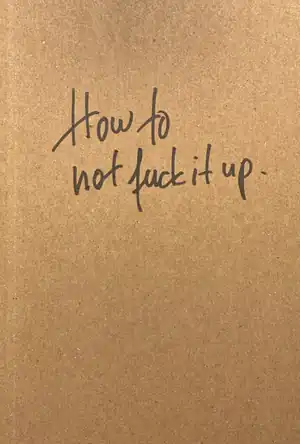 How to
not fuck it up.